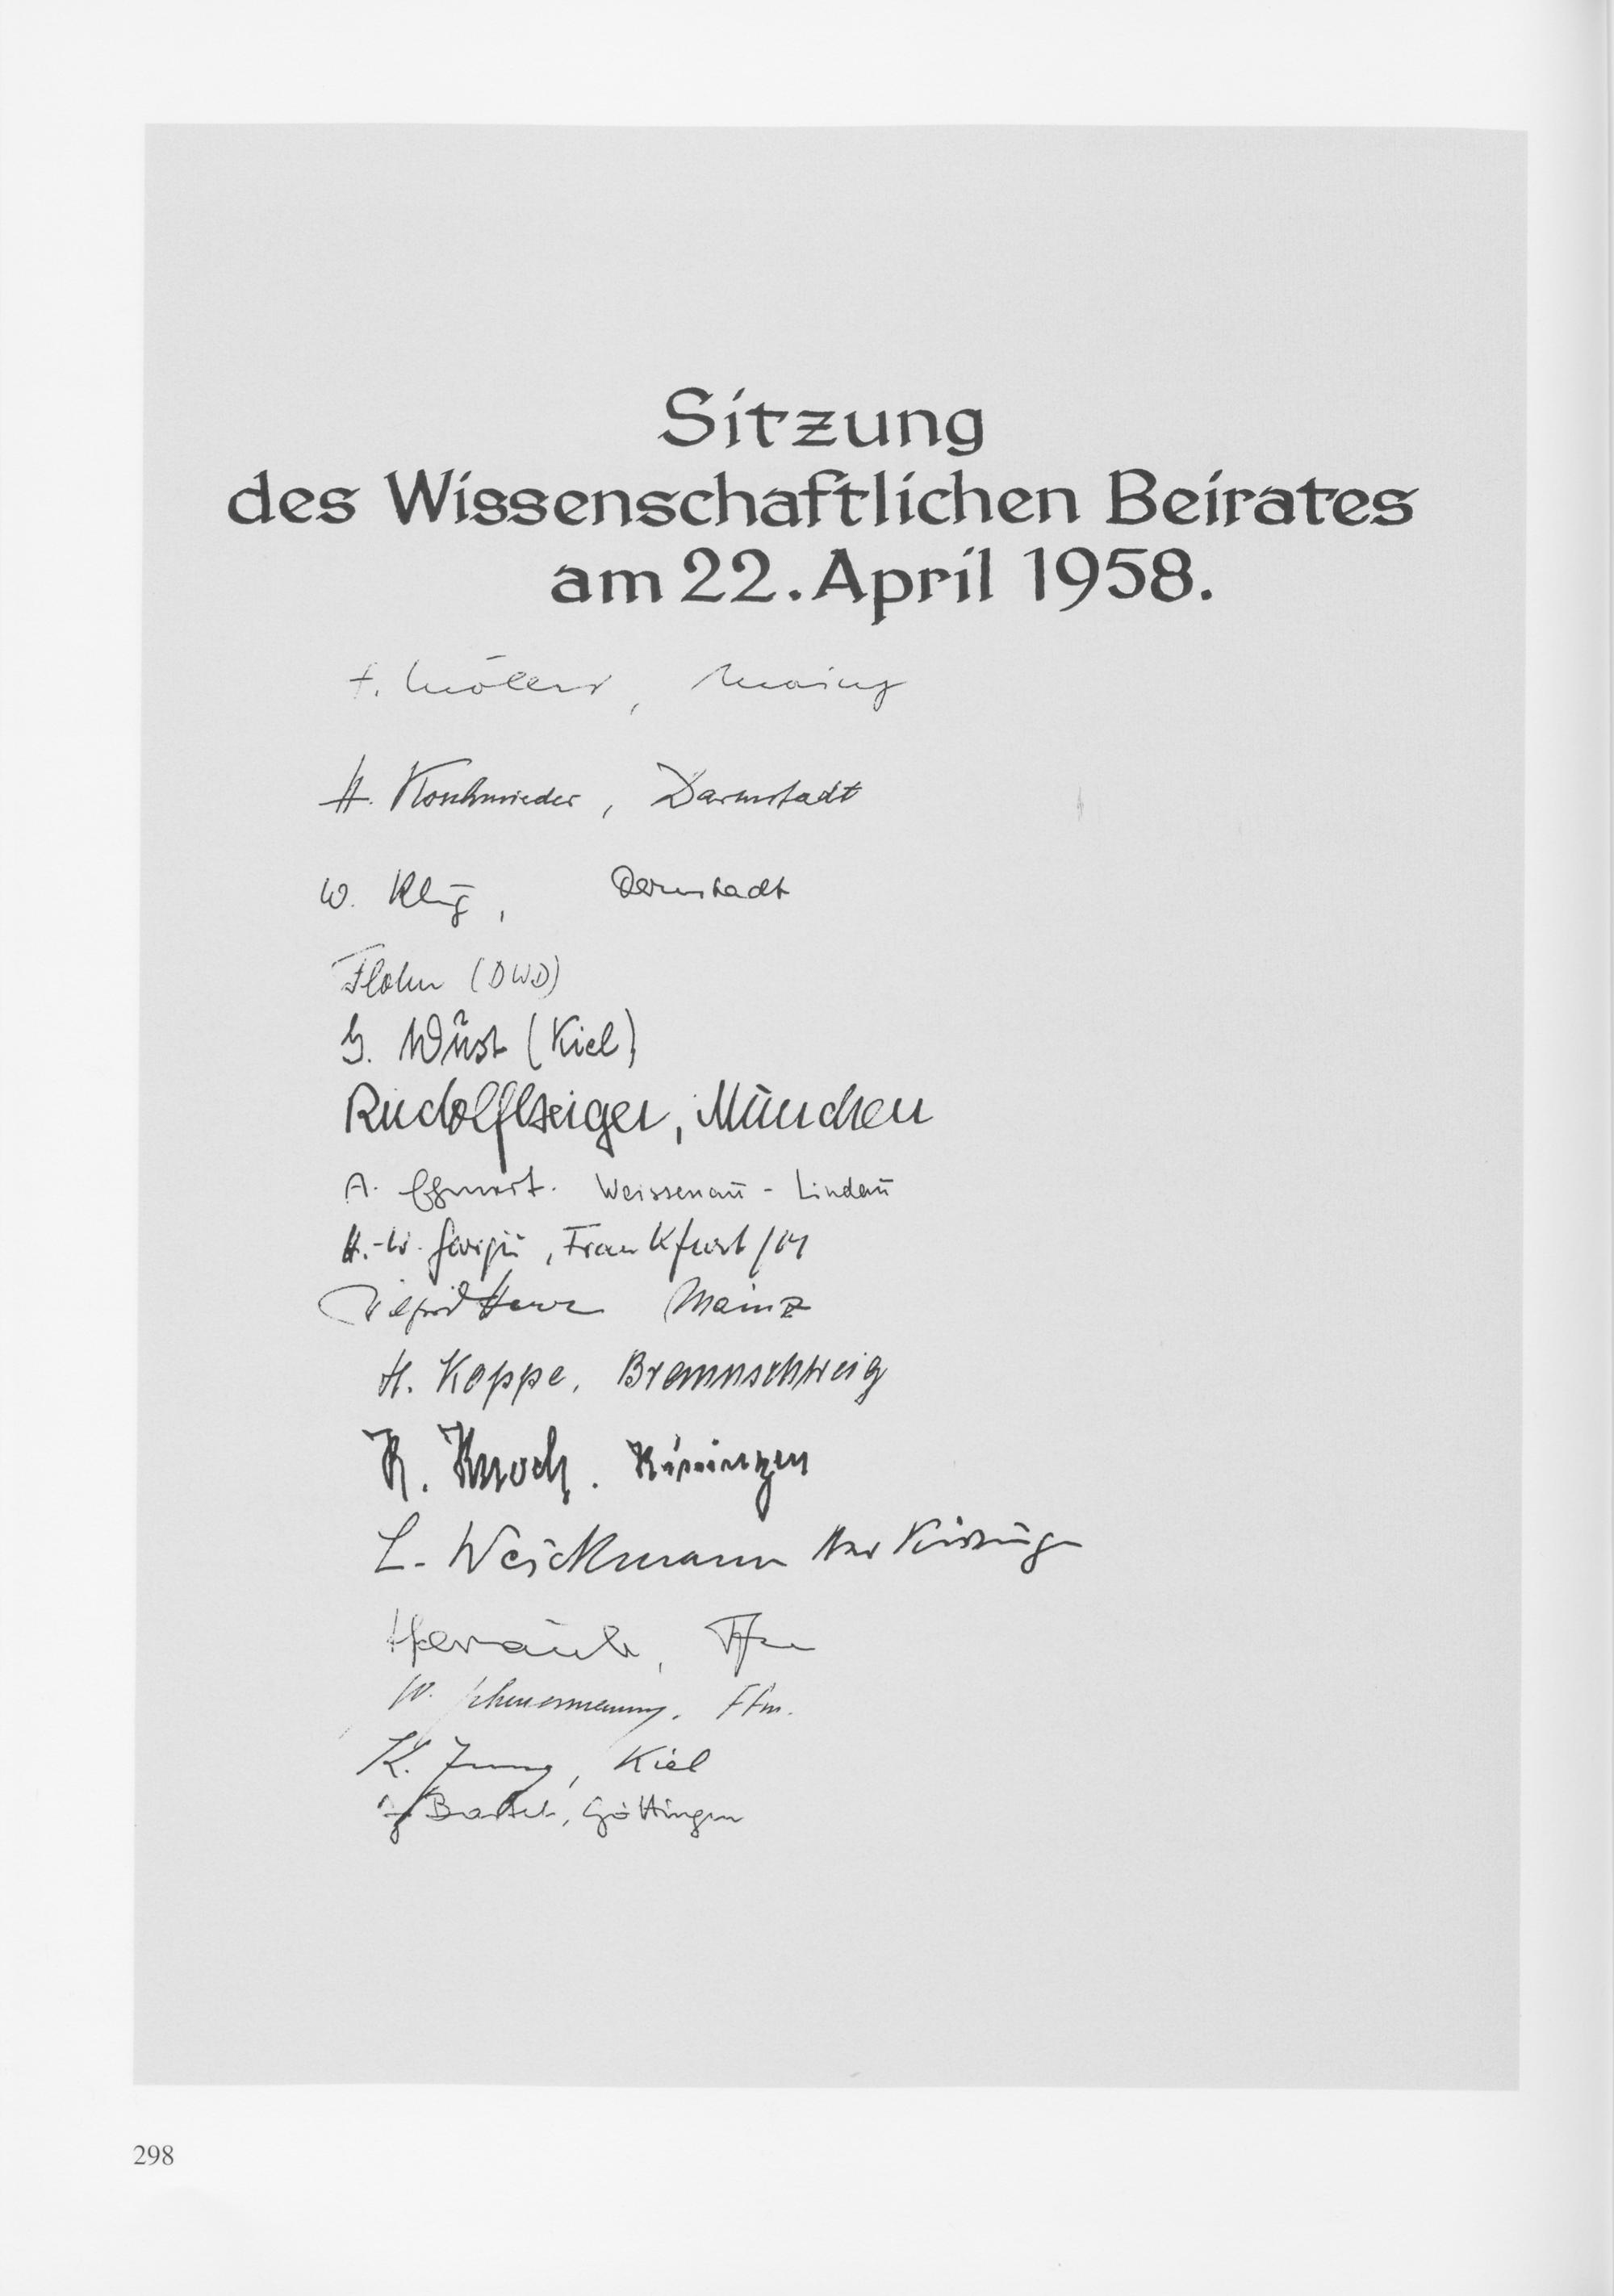 Sitzung
des Wissenschaftlichen Beirates
am 22. April 1958.
F. Möller, Mainz
H. Koschmieder, Darmstadt
W. Klug, Darmstadt
Flohn (DWD)
G. Wüst (Kiel)
Rudolf Geiger, München
A. Ehmert. Weissenau - Lindau
H.-W. Georgii, Frankfurt/M
Mainz
H. Koppe, Braunschweig
K. Knoch. Kissingen
L. Weickmann Bad Kissingen
Ffm
W. Ffm.
K. Jung, Kiel
Bartels, Göttingen
298